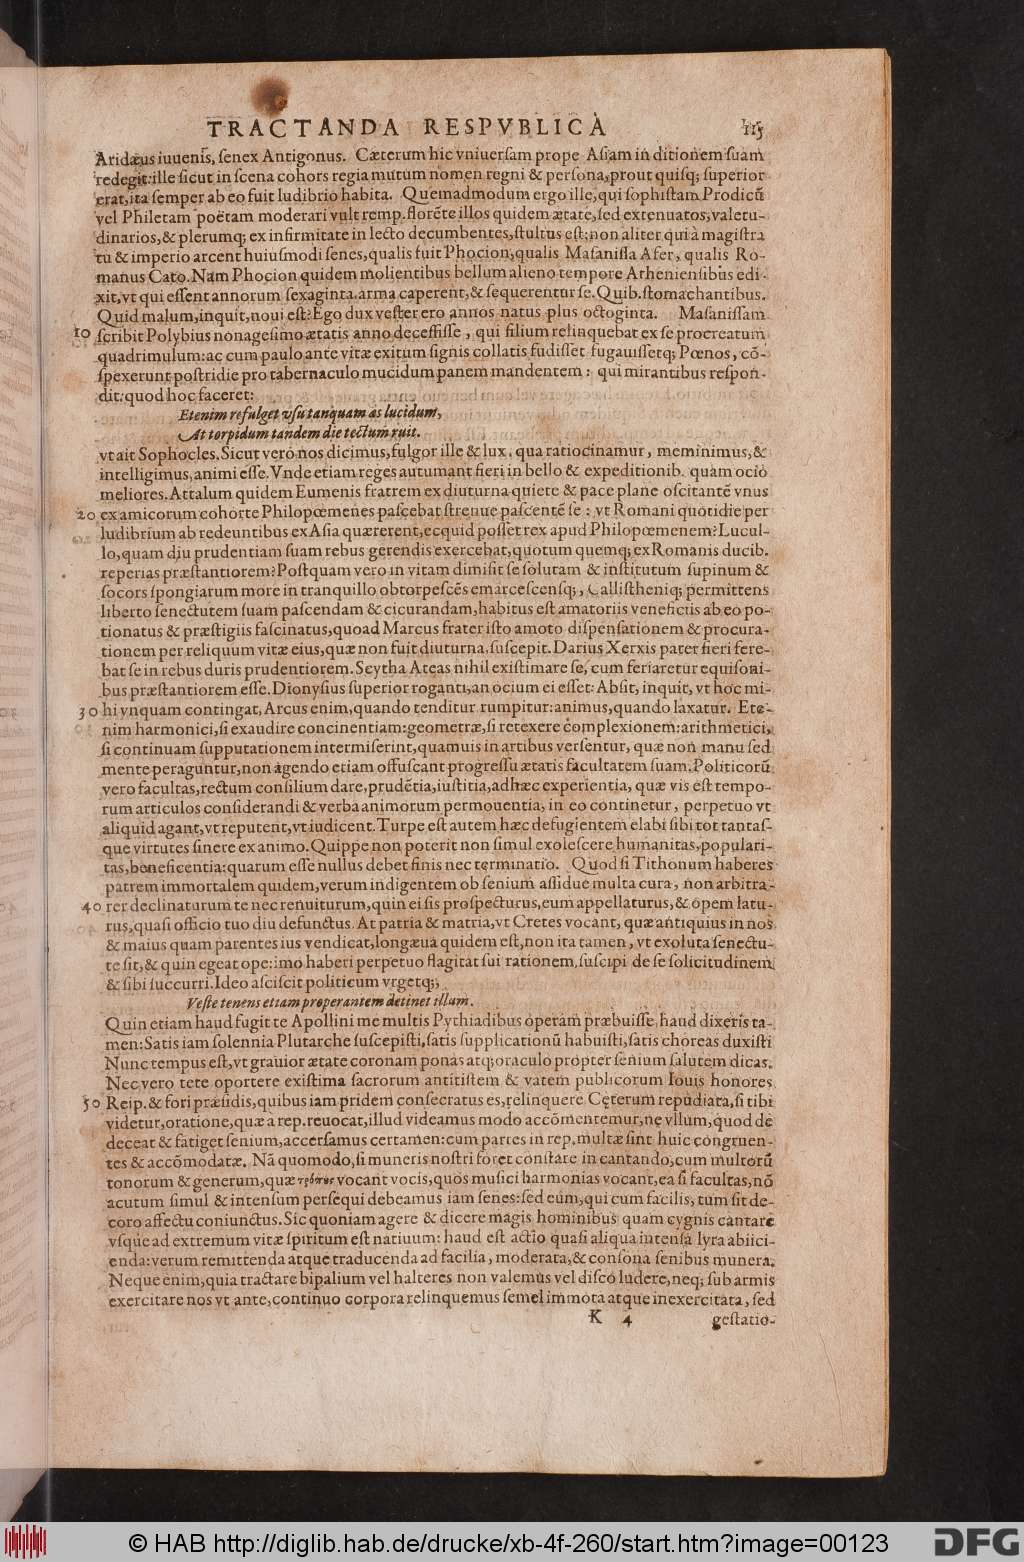 TRACTANDA RESPVBLICA 115
Aridæus iuuenis, senex Antigonus. Cæterum hic vniuersam prope Asiam in ditionem suam
redegit: ille sicut in scena cohors regia mutum nomen regni & persona, prout quisq; superior
erat, ita semper ab eo fuit ludibrio habita. Quemadmodum ergo ille, qui sophistam Prodicū
vel Philetam poëtam moderari vult remp. florēte illos quidem ætate, sed extenuatos, valetu-
dinarios, & plerumq; ex infirmitate in lecto decumbentes, stultus est: non aliter qui à magistra
tu & imperio arcent huiusmodi senes, qualis fuit Phocion, qualis Masanissa Afer, qualis Ro-
manus Cato. Nam Phocion quidem molientibus bellum alieno tempore Atheniensibus edi-
xit, vt qui essent annorum sexaginta, arma caperent, & sequerentur se. Quib. stomachantibus.
Quid malum, inquit, noui est? Ego dux vester ero annos natus plus octoginta. Masanissam
10 scribit Polybius nonagesimo ætatis anno decessisse, qui filium relinquebat ex se procreatum
quadrimulum: ac cum paulo ante vitæ exitum signis collatis fudisset fugauissetq; Pœnos, cō-
spexerunt postridie pro tabernaculo mucidum panem mandentem: qui mirantibus respon-
dit: quod hoc faceret:
Etenim refulget vsu tanquam æs lucidum,
At torpidum tandem die tectum ruit.
vt ait Sophocles. Sicut verò nos dicimus, fulgor ille & lux, qua ratiocinamur, meminimus, &
intelligimus, animi esse. Vnde etiam reges autumant fieri in bello & expeditionib. quàm ocio
meliores. Attalum quidem Eumenis fratrem ex diuturna quiete & pace plane oscitantē vnus
20 ex amicorum cohorte Philopœmenes pascebat strenue pascentē se: vt Romani quotidie per
ludibrium ab redeuntibus ex Asia quærerent, ecquid posset rex apud Philopœmenem? Lucul-
lo, quam diu prudentiam suam rebus gerendis exercebat, quotum quemq; ex Romanis ducib.
reperias præstantiorem? Postquam vero in vitam dimisit se solutam & institutum supinum &
socors spongiarum more in tranquillo obtorpescēs emarcescensq;, Callistheniq; permittens
liberto senectutem suam pascendam & cicurandam, habitus est amatoriis veneficiis ab eo po-
tionatus & præstigiis fascinatus, quoad Marcus frater isto amoto dispensationem & procura-
tionem per reliquum vitæ eius, quæ non fuit diuturna, suscepit. Darius Xerxis pater fieri fere-
bat se in rebus duris prudentiorem. Scytha Ateas nihil existimare se, cum feriaretur equisoni-
bus præstantiorem esse. Dionysius superior roganti, an ocium ei esset: Absit, inquit, vt hoc mi-
30 hi vnquam contingat, Arcus enim, quando tenditur rumpitur: animus, quando laxatur. Ete-
nim harmonici, si exaudire concinentiam: geometræ, si retexere complexionem: arithmetici,
si continuam supputationem intermiserint, quamuis in artibus versentur, quæ non manu sed
mente peraguntur, non agendo etiam offuscant progressu ætatis facultatem suam. Politicorū
vero facultas, rectum consilium dare, prudētia, iustitia, adhæc experientia, quæ vis est tempo-
rum articulos considerandi & verba animorum permouentia, in eo continetur, perpetuo vt
aliquid agant, vt reputent, vt iudicent. Turpe est autem hæc defugientem elabi sibi tot tantas-
que virtutes sinere ex animo. Quippe non poterit non simul exolescere humanitas, populari-
tas, beneficentia: quarum esse nullus debet finis nec terminatio. Quod si Tithonum haberes
patrem immortalem quidem, verum indigentem ob senium assidue multa cura, non arbitra-
40 rer declinaturum te nec renuiturum, quin ei sis prospecturus, eum appellaturus, & opem latu-
rus, quasi officio tuo diu defunctus. At patria & matria, vt Cretes vocant, quæ antiquius in nos
& maius quam parentes ius vendicat, longæua quidem est, non ita tamen, vt exoluta senectu-
te sit, & quin egeat ope: imo haberi perpetuo flagitat sui rationem, suscipi de se solicitudinem
& sibi succurri. Ideo asciscit politicum vrgetq;,
Veste tenens etiam properantem detinet illum.
Quin etiam haud fugit te Apollini me multis Pythiadibus operam præbuisse, haud dixeris ta-
men: Satis iam solennia Plutarche suscepisti, satis supplicationū habuisti, satis choreas duxisti
Nunc tempus est, vt grauior ætate coronam ponas atq; oraculo propter senium salutem dicas.
Nec vero tete oportere existima sacrorum antitistem & vatem publicorum Iouis honores
50 Reip. & fori præsidis, quibus iam pridem consecratus es, relinquere Cęterum repudiata, si tibi
videtur, oratione, quæ a rep. reuocat, illud videamus modo accōmentemur, ne vllum, quod de
deceat & fatiget senium, accersamus certamen: cum partes in rep. multæ sint huic congruen-
tes & accōmodatæ. Nā quomodo, si muneris nostri foret constare in cantando, cum multorū
tonorum & generum, quæ τρόπους vocant vocis, quos musici harmonias vocant, ea si facultas, nō
acutum simul & intensum persequi debeamus iam senes: sed eum, qui cum facilis, tum sit de-
coro affectu coniunctus. Sic quoniam agere & dicere magis hominibus quam cygnis cantare
vsque ad extremum vitæ spiritum est natiuum: haud est actio quasi aliqua intensa lyra abiici-
enda: verum remittenda atque traducenda ad facilia, moderata, & consona senibus munera.
Neque enim, quia tractare bipalium vel halteres non valemus vel disco ludere, neq; sub armis
exercitare nos vt ante, continuo corpora relinquemus semel immota atque inexercitata, sed
K 4 gestatio-
© HAB http://diglib.hab.de/drucke/xb-4f-260/start.htm?image=00123
DFG